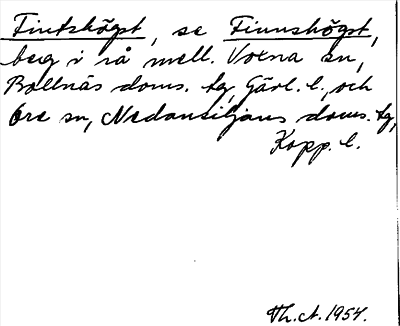 Fintshögst, se Finnshögst,
berg i rå mell. Voxna sn,
Bollnäs doms. tg, Gävl. l., och
Ore sn, Nedansiljans doms. tg,
Kopp. l.
Th.A. 1954.